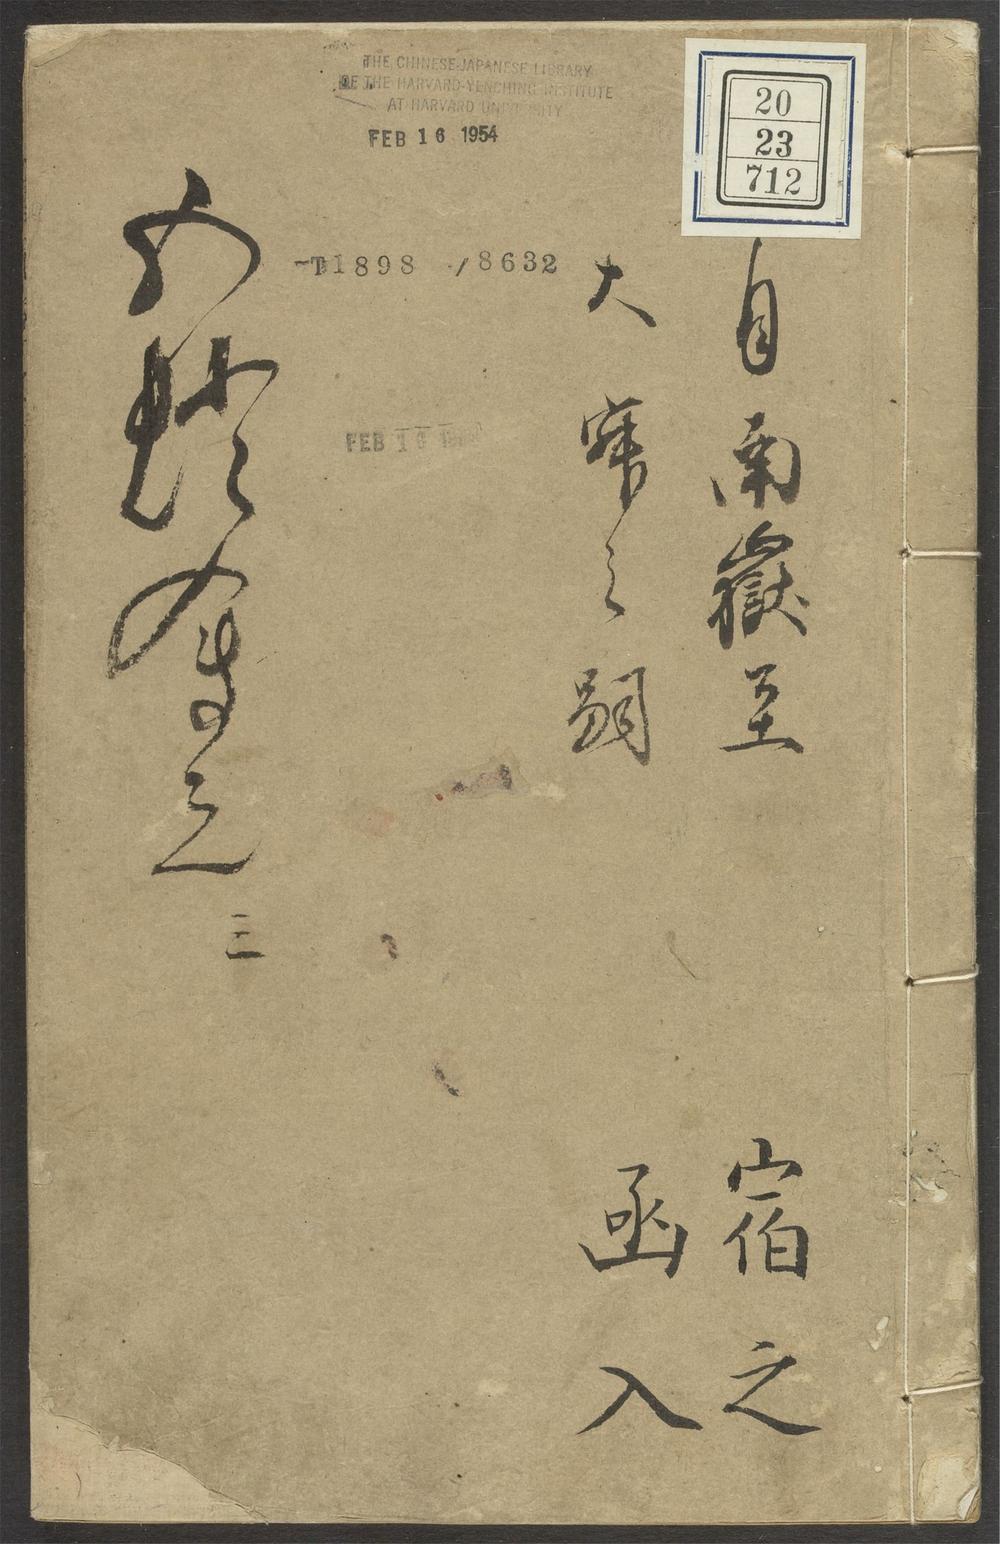 THE CHINESE-JAPANESE LIBRARY
OF THE HARVARD-YENCHING INSTITUTE
AT HARVARD UNIVERSITY
FEB 16 1954
20
23
712
T1898 /8632
FEB 16
自南嶽至
大寂之嗣
宿之
函入
五燈會元
三